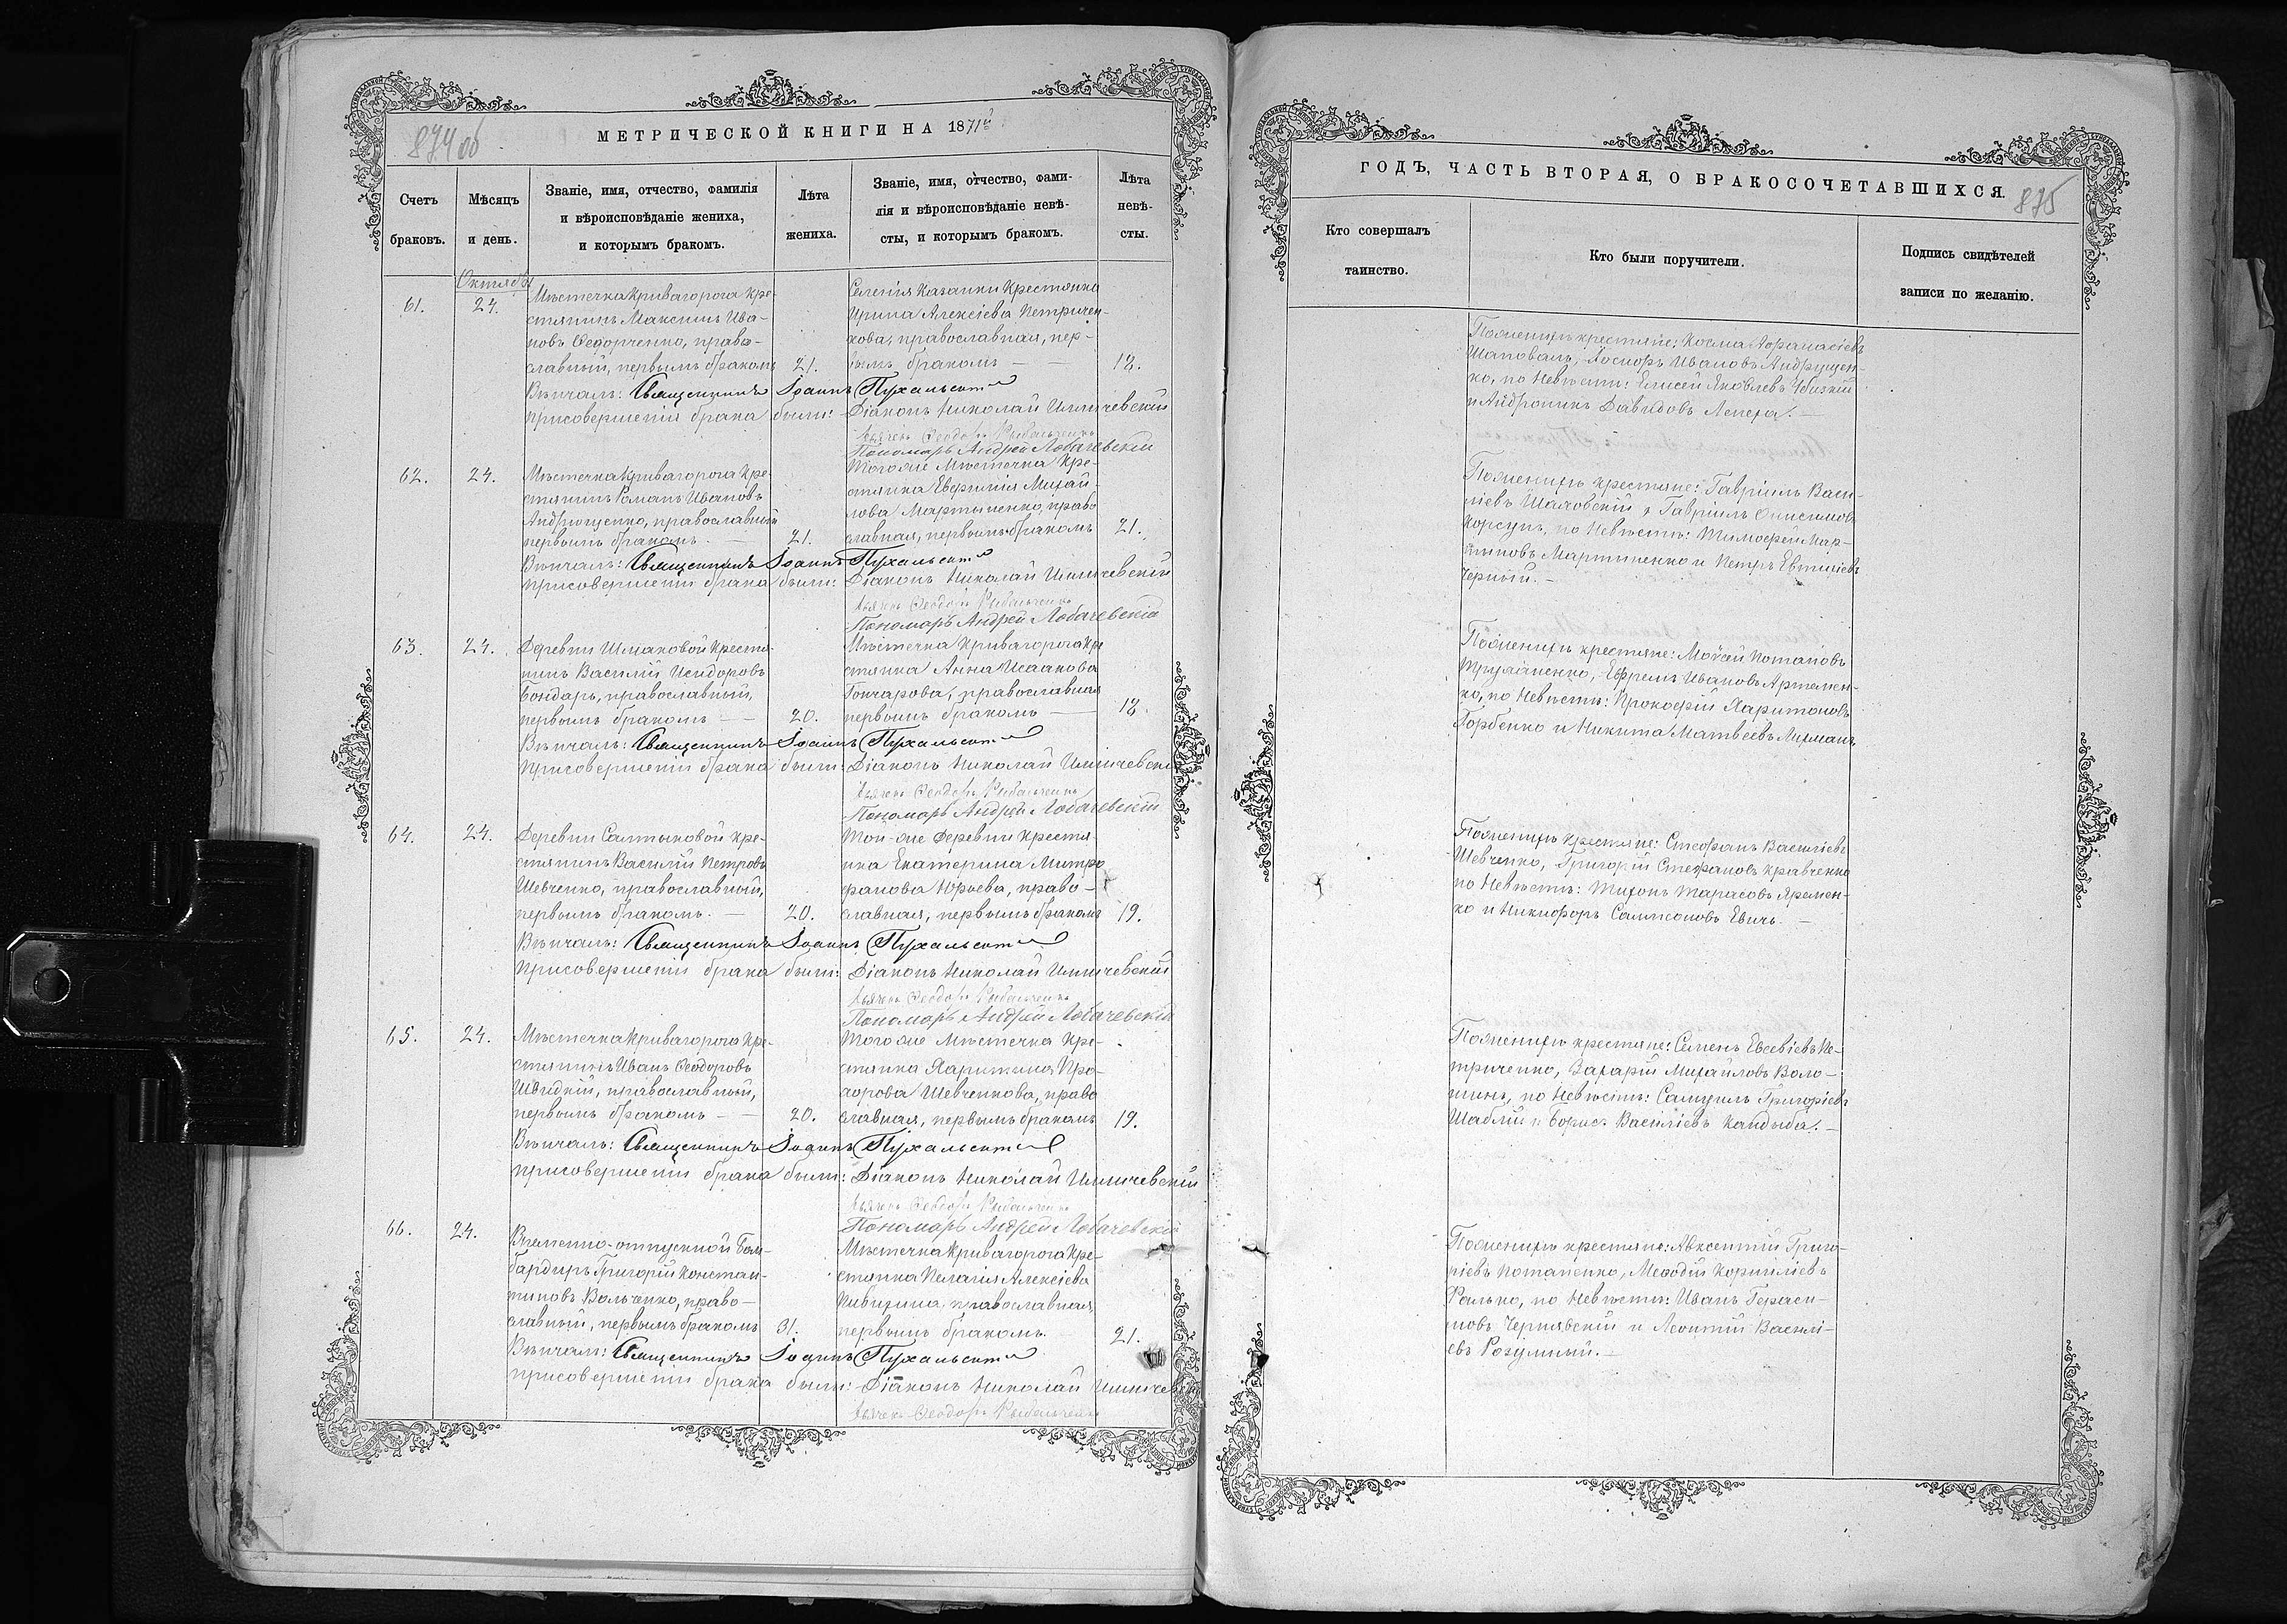 874 об
МЕТРИЧЕСКОЙ КНИГИ НА 1871й
Счетъ
браковъ.
Мѣсяцъ
и день.
Званіе, имя, отчество, фамилія
и вѣроисповѣданіе жениха,
и которымъ бракомъ.
Лѣта
жениха.
Званіе, имя, отчество, фами-
лія и вѣроисповѣданіе невѣ-
сты, и которымъ бракомъ.
Лѣта
невѣ-
сты.
Октябрь
61.
24.
Мѣстечка Кривагорога кре-
стянинъ Максимъ Ива-
новъ Федорченко, право-
славный, первымъ бракомъ
21.
Селенія Казанки Крестянка
Ирина Алексіева Петричен-
кова, православная, пер-
вымъ бракомъ
18.
Вѣнчалъ: Священникъ Іоаннъ Пухальскій
При совершеніи брака были: Діаконъ Николай Илличевскій
Дьячекъ Феодоръ Рыбальченко
Пономарь Андрей Лобачевскій
62.
24.
Мѣстечка Кривагорога кре-
стянинъ Романъ Ивановъ
Андрющенко, православный
первымъ бракомъ. —
21.
Тогоже Мѣстечка Кре-
стянка Евфимія Михай-
лова Мартыненко, право
славная, первымъ бракомъ
21.
Вѣнчалъ: Священникъ Іоаннъ Пухальскій
При совершеніи брака были: Діаконъ Николай Илличевскій
Дьячекъ Феодоръ Рыбальченко
Пономарь Андрей Лобачевскій
63.
24.
Деревни Шмаковой Крестя-
нинъ Василій Исидоровъ
Бондарь, православный,
первымъ бракомъ —
20.
Мѣстечка Кривагорога Кре
стянка Анна Исаакова
Гончарова, православная
первымъ бракомъ —
18.
Вѣнчалъ: Священникъ Іоаннъ Пухальскій
При совершеніи брака были: Діаконъ Николай Илличевскій
Дьячекъ Феодоръ Рыбальченко
Пономарь Андрей Лобачевскій
64.
24.
Деревни Салтыковой Кре-
стянинъ Василій Петровъ
Шевченко, православный,
первымъ бракомъ. —
20.
Той-же Деревни Крестя-
нка Екатерина Митро
фанова Юрьева, право-
славная, первымъ бракомъ
19.
Вѣнчалъ: Священникъ Іоаннъ Пухальскій
При совершеніи брака были: Діаконъ Николай Илличевскій
Дьячекъ Феодоръ Рыбальченко
Пономарь Андрей Лобачевскій
65.
24.
Мѣстечка Кривагорога Кре-
стянинъ Иванъ Феодоровъ
Швидкій, православный,
первымъ бракомъ —
20.
Тогоже Мѣстечка Кре-
стянка Харитина Про-
хорова Шевченкова, право
славная, первымъ бракомъ
19.
Вѣнчалъ: Священникъ Іоаннъ Пухальскій
При совершеніи брака были: Діаконъ Николай Илличевскій
Дьячекъ Феодоръ Рыбальченко
Пономарь Андрей Лобачевскій
66.
24.
Временно-отпускной Бом-
бардиръ Григорій Констан-
тиновъ Вольченко, право-
славный, первымъ бракомъ
31.
Мѣстечка Кривагорога Кре-
стянка Пелагія Алексіева
православная,
первымъ бракомъ.
21.
Вѣнчалъ: Священникъ Іоаннъ Пухальскій
При совершеніи брака были: Діаконъ Николай Илличевскій
Дьячекъ Феодоръ Рыбальченко
ГОДЪ, ЧАСТЬ ВТОРАЯ, О БРАКОСОЧЕТАВШИХСЯ.
875
Кто совершалъ
таинство.
Кто были поручители.
Подпись свидѣтелей
записи по желанію.
По жениху крестяне: Косма Афанасіевъ
Шаповалъ, Иосифъ Ивановъ Андрущен-
ко, по Невѣсти: Елисей Яковлевъ
и Андроникъ Давидовъ Лепеха. —
По жениху крестяне: Гавріилъ Васи-
ліевъ Шаховскій и Гавріилъ Онисимовъ
Корсунъ, по Невѣсти: Тимофей Мар-
тыновъ Мартиненко и Петръ Евтихіевъ
Черный. —
По жениху крестяне: Моѵсей Потаповъ
Ефремъ Ивановъ Артемен-
ко, по Невѣсти: Прокофій Харитоновъ
Горбенко и Никита Матвеевъ Лихманъ
По жениху Крестяне: Стефанъ Василіевъ
Шевченко, Григорій Стефановъ Кравченко
по Невѣсти: Тихонъ Тарасовъ Яремен-
ко и Никифоръ Сампсоновъ Евичъ. —
По жениху крестяне: Семенъ Евсевіевъ Пе-
триченко, Захарій Михайловъ Воло-
шинъ, по Невѣсти: Самуилъ Григоріевъ
Шаблій и Борисъ Василіевъ Кандыба. —
По жениху крестяне: Авксентій Григо-
ріевъ Потапенко, Мефодій Корниліевъ
Фалько, по Невѣсти: Иванъ Гераси-
мовъ Чернявскій и Леонтій Василі-
евъ Розумный. —